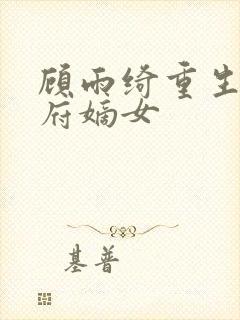 顾雨绮重生
府嫡女
基普